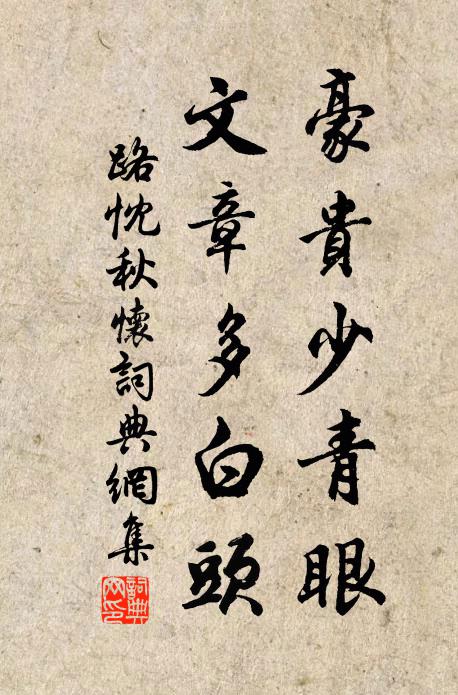 豪貴少青眼
文章多白頭
路忱秋懷詞典網集
詞典網印